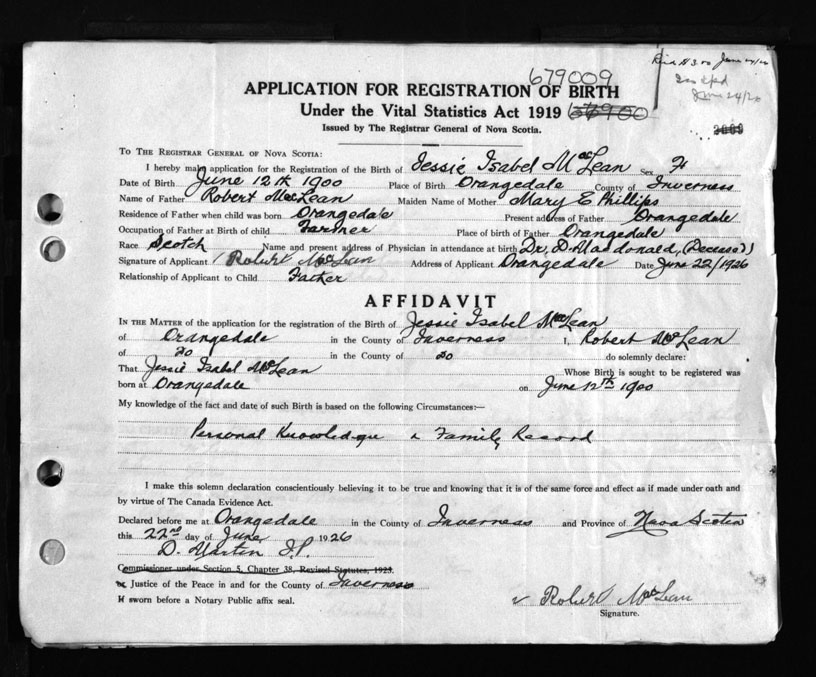 679009
June 24/26
APPLICATION FOR REGISTRATION OF BIRTH
Under the Vital Statistics Act 1919 67900
Issued by The Registrar General of Nova Scotia.
TO THE REGISTRAR GENERAL OF NOVA SCOTIA:
I hereby make application for the Registration of the Birth of Jessie Isabel MacLean Sex F
Date of Birth June 12th 1900 Place of Birth Orangedale County of Inverness
Name of Father Robert MacLean Maiden Name of Mother Mary E Phillips
Residence of Father when child was born Orangedale Present address of Father Orangedale
Occupation of Father at Birth of child Farmer Place of birth of Father Orangedale
Race Scotch Name and present address of Physician in attendance at birth Dr. D. Macdonald, (Deceased)
Signature of Applicant Robert McLean Address of Applicant Orangedale Date June 22/1926
Relationship of Applicant to Child Father
AFFIDAVIT
IN THE MATTER of the application for the registration of the Birth of Jessie Isabel MacLean
of Orangedale in the County of Inverness I, Robert McLean
of do in the County of do do solemnly declare:
That Jessie Isabel McLean Whose Birth is sought to be registered was
born at Orangedale on June 12th 1900
My knowledge of the fact and date of such Birth is based on the following Circumstances:—
Personal Knowledge & Family Record
I make this solemn declaration conscientiously believing it to be true and knowing that it is of the same force and effect as if made under oath and
by virtue of The Canada Evidence Act.
Declared before me at Orangedale in the County of Inverness and Province of Nova Scotia
this 22nd day of June 1926
D. Martin J.P.
Commissioner under Section 5, Chapter 38, Revised Statutes, 1923.
Justice of the Peace in and for the County of Inverness
If sworn before a Notary Public affix seal.
Robert McLean
Signature.